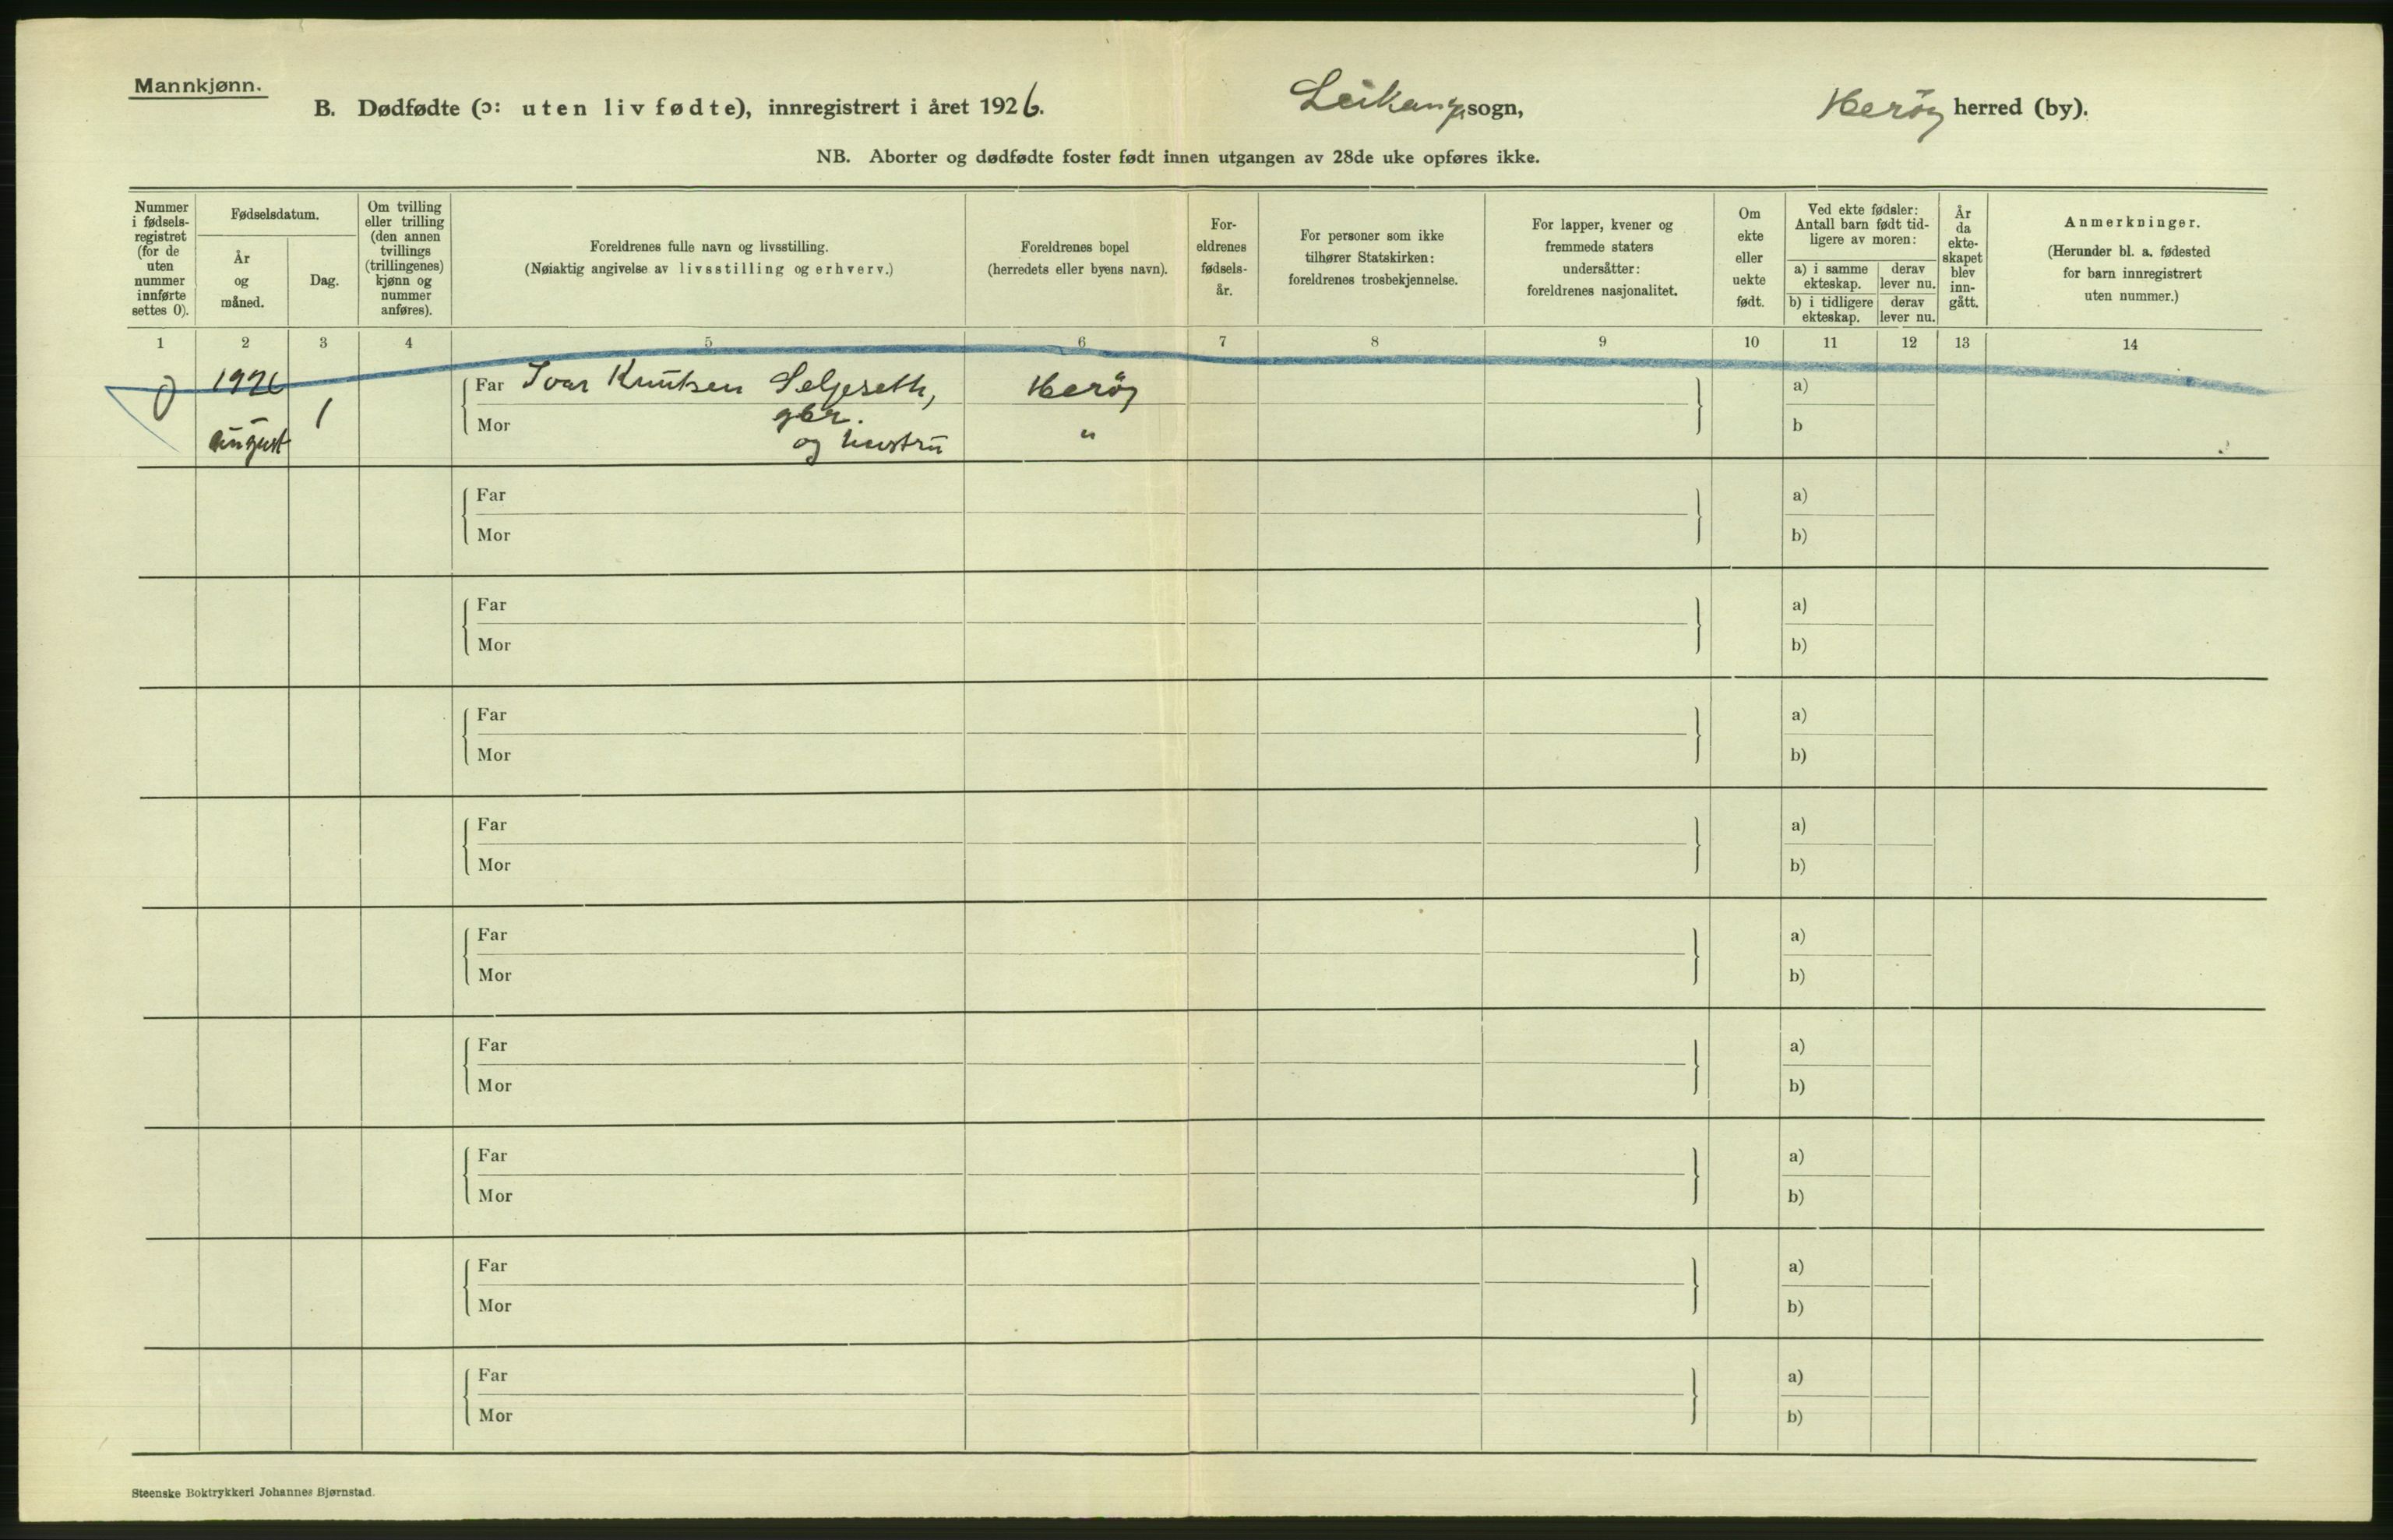 Mannkjønn.
B. Dødfødte (ɔ: uten liv fødte), innregistrert i året 1926.
Leikang sogn,
Herøy herred (by).
NB. Aborter og dødfødte foster født innen utgangen av 28de uke opføres ikke.
Nummer
i fødsels-
registret
(for de
uten
nummer
innførte
settes 0).
Fødselsdatum.
År
og
måned.
Dag.
Om tvilling
eller trilling
(den annen
tvillings
(trillingenes)
kjønn og
nummer
anføres).
Foreldrenes fulle navn og livsstilling.
(Nøiaktig angivelse av livsstilling og erhverv.)
Foreldrenes bopel
(herredets eller byens navn).
For-
eldrenes
fødsels-
år.
For personer som ikke
tilhører Statskirken:
foreldrenes trosbekjennelse.
For lapper, kvener og
fremmede staters
undersåtter:
foreldrenes nasjonalitet.
Om
ekte
eller
uekte
født.
Ved ekte fødsler:
Antall barn født tid-
ligere av moren:
a) i samme
ekteskap.
derav
lever nu.
b) i tidligere
ekteskap.
derav
lever nu.
År
da
ekte-
skapet
blev
inn-
gått.
Anmerkninger.
(Herunder bl. a. fødested
for barn innregistrert
uten nummer.)
1 2 3 4 5 6 7 8 9 10 11 12 13 14
0 1926 Far Ivar Knutsen Seljeseth, Herøy a)
august 1 Mor gbr. b
og hustru "
Far a)
Mor b)
Far a)
Mor b)
Far a)
Mor b)
Far a)
Mor b)
Far a)
Mor b)
Far a)
Mor b)
Far a)
Mor b)
Far a)
Mor b)
Far a)
Mor b)
Steenske Boktrykkeri Johannes Bjørnstad.